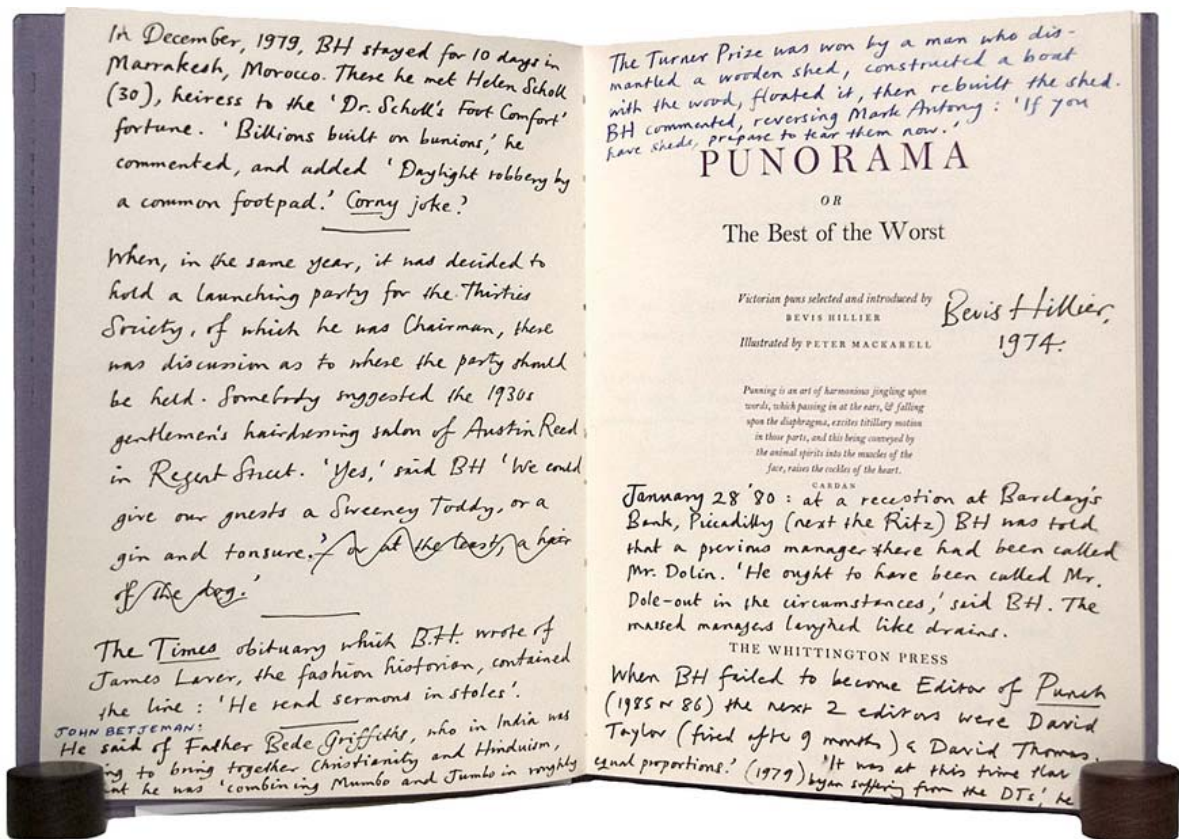 In December, 1979, BH stayed for 10 days in
Marrakesh, Morocco. There he met Helen Scholl
(30), heiress to the 'Dr. Scholl's Foot Comfort'
fortune. 'Billions built on bunions,' he
commented, and added 'Daylight robbery by
a common footpad.' Corny joke?
When, in the same year, it was decided to
hold a launching party for the Thirties
Society, of which he was Chairman, there
was discussion as to where the party should
be held. Somebody suggested the 1930s
gentlemen's hairdressing salon of Austin Reed
in Regent Street. 'Yes,' said BH 'We could
give our guests a Sweeney Toddy, or a
gin and tonsure.' or at the least, a hair
of the dog.'
The Times obituary which B.H. wrote of
James Laver, the fashion historian, contained
the line: 'He read sermons in stoles'.
JOHN BETJEMAN:
He said of Father Bede Griffiths, who in India was
to bring together Christianity and Hinduism,
he was 'combining Mumbo and Jumbo in roughly
The Turner Prize was won by a man who dis-
mantled a wooden shed, constructed a boat
with the wood, floated it, then rebuilt the shed.
BH commented, reversing Mark Antony: 'If you
have sheds, prepare to tear them now.'
PUNORAMA
OR
The Best of the Worst
Victorian puns selected and introduced by
BEVIS HILLIER
Illustrated by PETER MACKARELL
Bevis Hillier,
1974.
Punning is an art of harmonious jingling upon
words, which passing in at the ears, & falling
upon the diaphragma, excites titillary motion
in those parts, and this being conveyed by
the animal spirits into the muscles of the
face, raises the cockles of the heart.
CARDAN
January 28 '80: at a reception at Barclay's
Bank, Piccadilly (next the Ritz) BH was told
that a previous manager there had been called
Mr. Dolin. 'He ought to have been called Mr.
Dole-out in the circumstances,' said BH. The
massed managers laughed like drains.
THE WHITTINGTON PRESS
When BH failed to become Editor of Punch
(1985 or 86) the next 2 editors were David
Taylor (fired after 9 months) & David Thomas.
'It was at this time that
equal proportions.' (1979) began suffering from the DTs', he